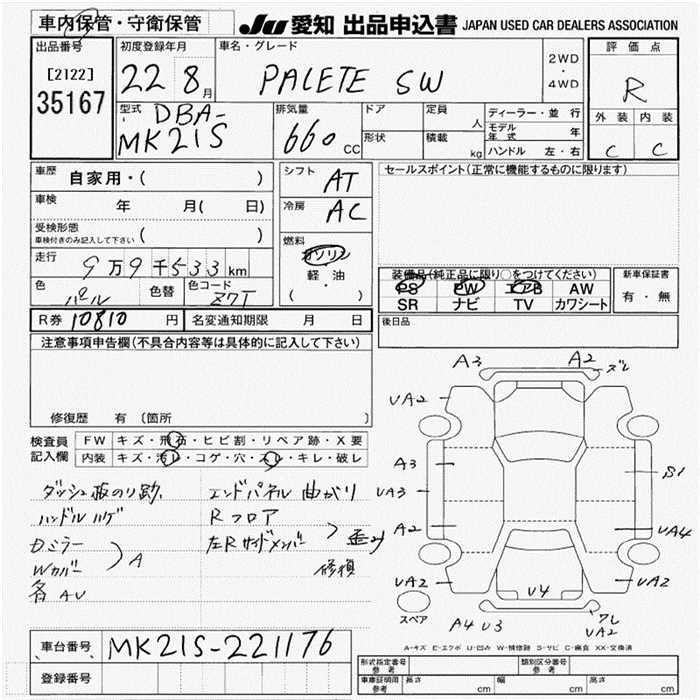 車内保管・守衛保管
JU 愛知 出品申込書 JAPAN USED CAR DEALERS ASSOCIATION
出品番号
[2122]
35167
初度登録年月
22 8月
車名・グレード
PALETE SW
2WD
・
4WD
評価点
R
外装 内装
C C
型式
DBA-
MK21S
排気量
660 CC
ドア
形状
定員 人
積載 kg
ディーラー・並行
モデル年式 年
ハンドル 左・右
車歴 自家用・( )
車検 年 月( 日)
受検形態
車検付きのみ記入して下さい ( )
走行 9万9千533km
色 パール
色替
色コード Z7T
R券 10810 円
名変通知期限 月 日
シフト AT
冷房 AC
燃料
ガソリン
軽・油
( ・ )
セールスポイント(正常に機能するものに限ります)
装備品(純正品に限り○をつけてください)
PS PW エアB AW
SR ナビ TV カワシート
新車保証書
有・無
後日品
注意事項申告欄(不具合内容等は具体的に記入して下さい)
修復歴 有 〔箇所
検査員
記入欄
FW キズ・飛石・ヒビ割・リペア跡・X要
内装 キズ・汚レ・コゲ・穴・スレ・キレ・破レ
ダッシュ板のり跡
ハンドルハゲ
Dミラー
Wカバー
A
各AU
エンドパネル 曲がり
Rフロア
左Rサイドメンバー
歪み
修補
A3 A2 ズレ
UA2
A3
UA3
A2
UA2
S1
UA4
UA2
U4
スペア
A4 U3
ワレ
UA2
A-キズ E-エクボ U-凹み W-補修跡 S-サビ C-腐食 XX-交換済
車台番号 MK21S-221176
登録番号
形式指定番号
参考
類別区分番号
参考
車庫証明用
参考
長さ cm
幅 cm
高さ cm